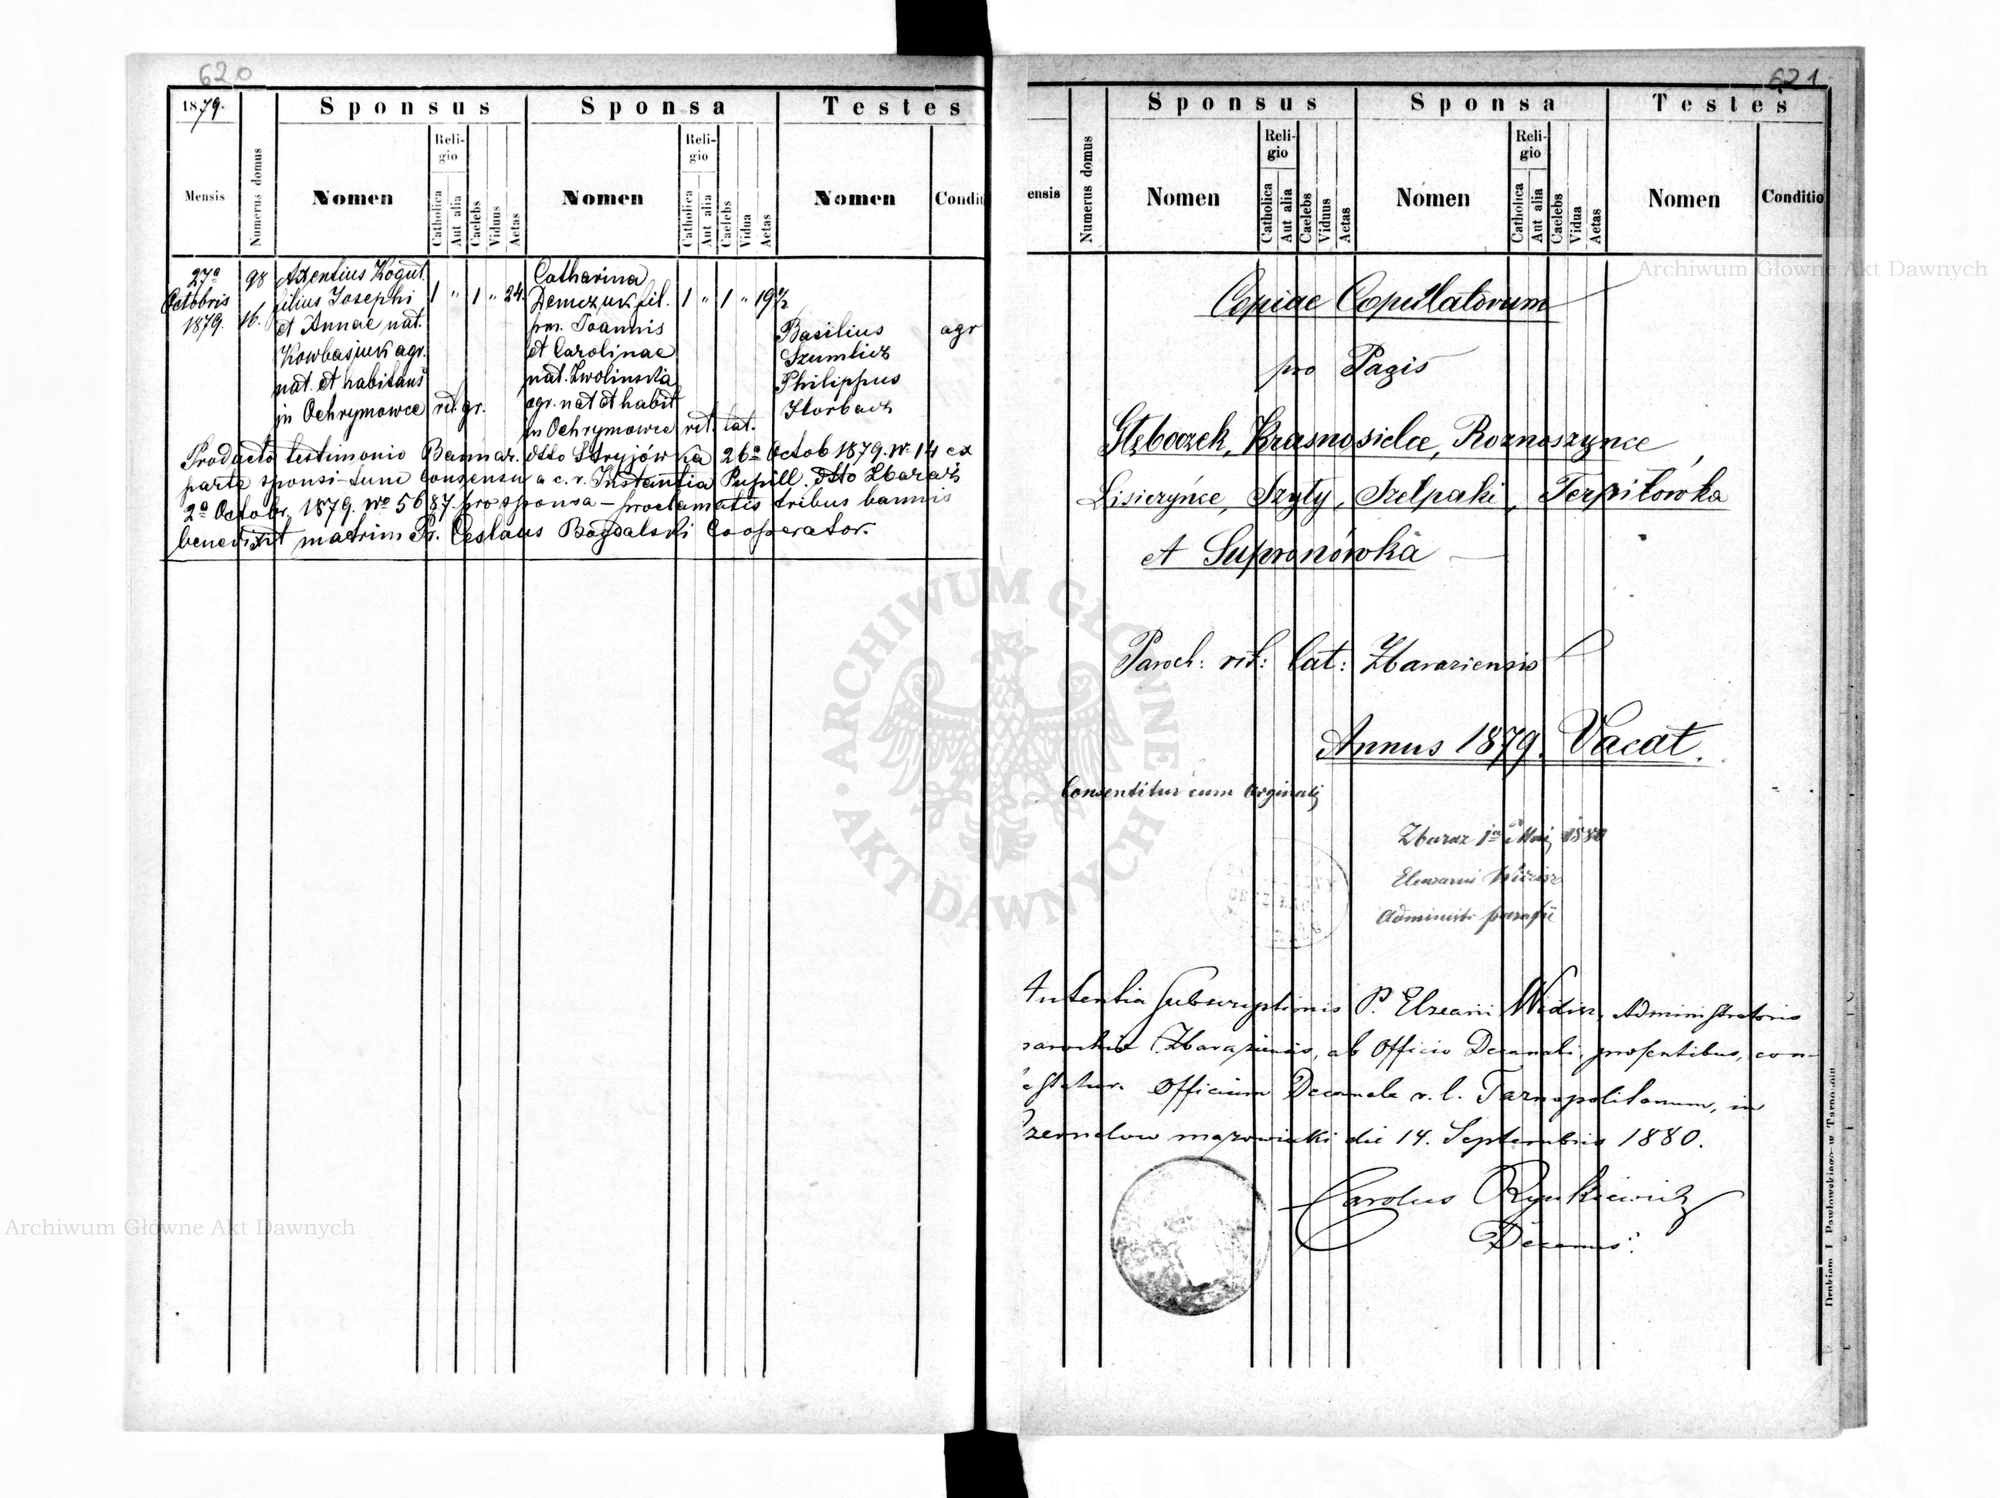 620
1879.
Sponsus
Sponsa
Testes
Mensis
Numerus domus
Nomen
Religio
Catholica
Aut alia
Caelebs
Viduus
Aetas
Nomen
Religio
Catholica
Aut alia
Caelebs
Vidua
Aetas
Nomen
Conditi
27a
Octobris
1879.
98
16.
Axentius Kogut
filius Josephi
et Annae nat.
Kowbasiuk agr.
nat. et habitans
in Ochrymowce rit. gr.
1 " 1 " 24.
Catharina
Demczuk fil.
pm. Joannis
et Carolinae
nat. Zwolinska
agr. nat et habit
in Ochrymowce rit. lat.
1 " 1 " 19 1/2
Basilius
Szumlicz
Philippus
Horbacz
agr
Producto testimonio Bannor. dtto Stryjówka 26a Octob 1879. No 14 ex
parte sponsi - tunc consensu a c. r. Instantia Pupill. dtto Zbaraż
2a Octobr. 1879. No 5687. pro sponsa - proclamatis tribus bannis
benedixit matrim Pr. Ceslaus Bogdalski Cooperator.
621
Sponsus
Sponsa
Testes
ensis
Numerus domus
Nomen
Religio
Catholica
Aut alia
Caelebs
Viduus
Aetas
Nomen
Religio
Catholica
Aut alia
Caelebs
Vidua
Aetas
Nomen
Conditio
Copiae Copulatorum
pro Pagis
Głęboczek, Krasnosielce, Roznoszynce,
Lisieczyńce, Szyły, Szelpaki, Terpiłowka
et Supronówka
Paroch: rit: lat: Zbaraziensis
Annus 1879. Vacat.
Consentitur cum orginalj
Zbaraz 1a Maij 1880
Eleazarus
Administ. parafii
subscriptionis P. Elzearii Administratoris
Zbaraziensis, ab Officio Decanali, præsentibus, con-
Officium Decanale r. l. Tarnopolitanum, in
die 14. Septembris 1880.
Carolus Rynkiewicz
Decanus.
Drukiem J. Pawłowskiego w Tarnopolu
Archiwum Główne Akt Dawnych
Archiwum Główne Akt Dawnych
ARCHIWUM GŁÓWNE AKT DAWNYCH